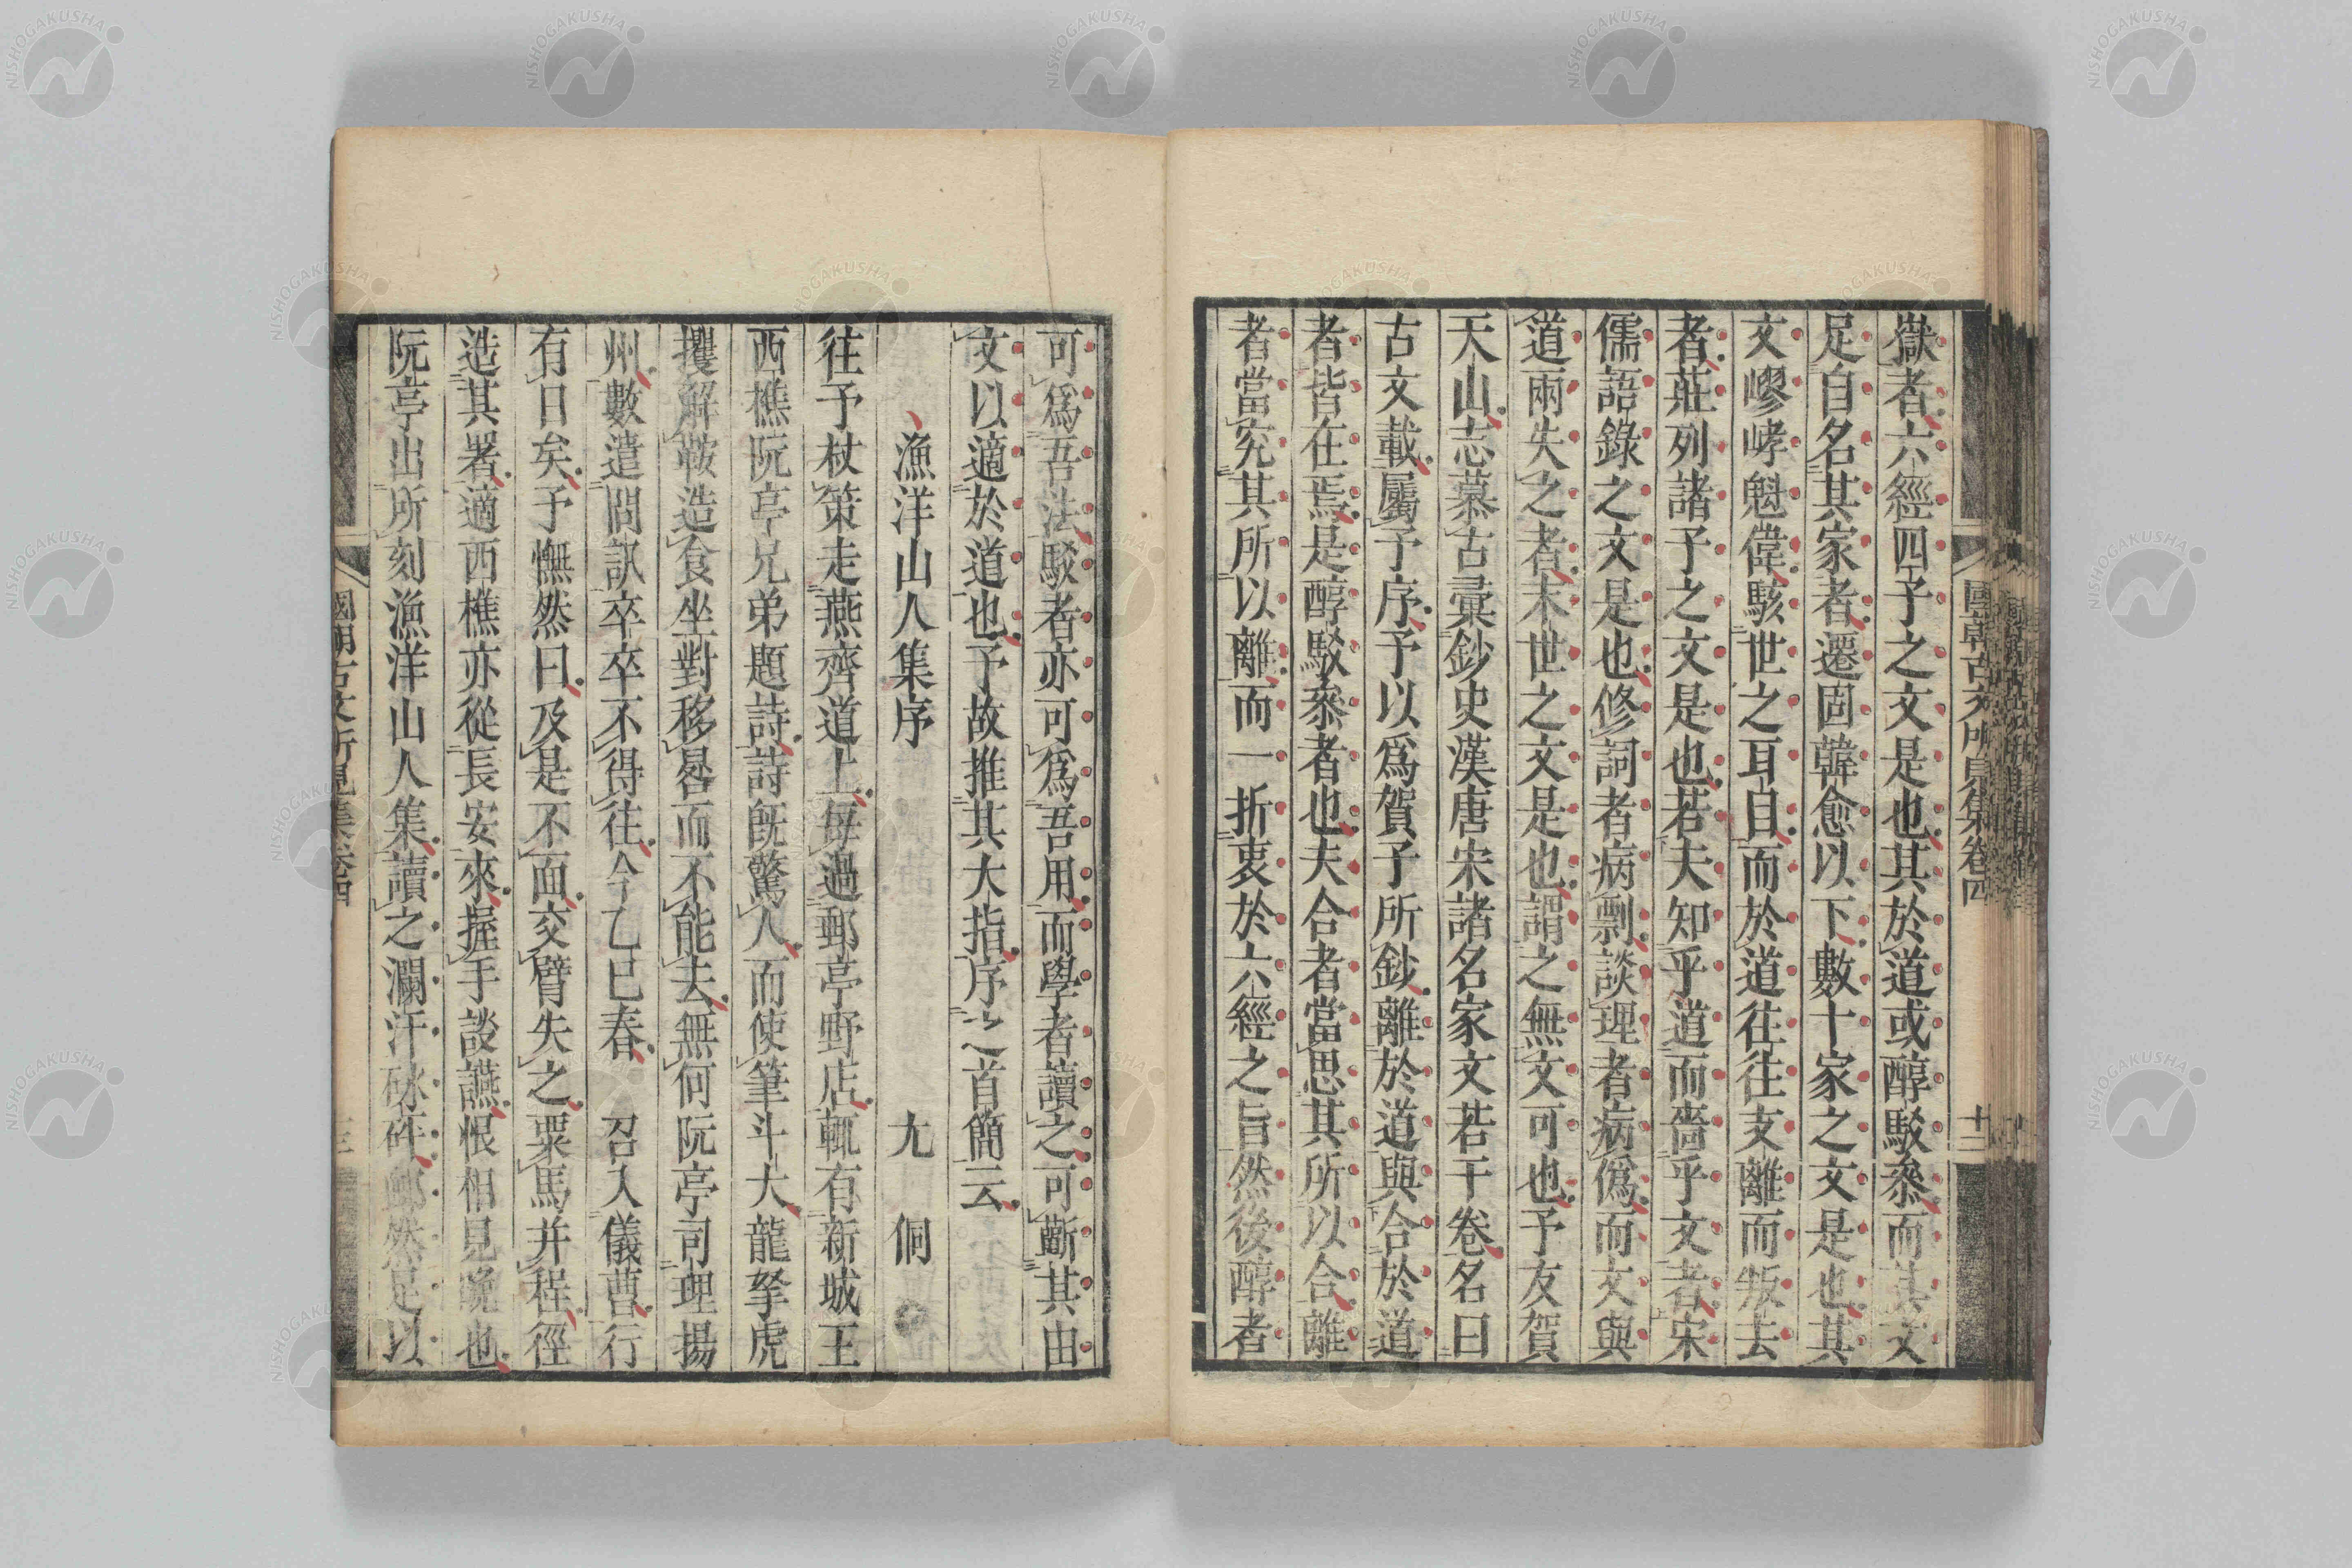 嶽者六經四子之文是也其於道或醇駁叅而其文
足自名其家者遷固韓愈以下數十家之文是也其
文嵺峍魁偉駭世之耳目而於道往往支離而叛去
者莊列諸子之文是也若夫知乎道而嗇乎文者宋
儒語錄之文是也修詞者病剽談理者病僞而文與
道兩失之者末世之文是也謂之無文可也予友賀
天山志慕古彙鈔史漢唐宋諸名家文若干卷名曰
古文載屬予序予以爲賀子所鈔離於道與合於道
者皆在焉是醇駁叅者也夫合者當思其所以合離
者當究其所以離而一折衷於六經之旨然後醇者
國朝古文所見集卷四 十二
可爲吾法駁者亦可爲吾用而學者讀之可斷其由
文以適於道也予故推其大指序之首簡云
漁洋山人集序 尤侗
往予杖策走燕齊道上每過郵亭野店輒有新城王
西樵阮亭兄弟題詩詩旣驚人而使筆斗大龍拏虎
攫解鞍造食坐對移晷而不能去無何阮亭司理揚
州數遣問訊卒卒不得往今乙巳春 召入儀曹行
有日矣予憮然曰及是不面交臂失之粟馬并程徑
造其署適西樵亦從長安來握手談讌恨相見晚也
阮亭出所刻漁洋山人集讀之瀾汗砯砰鄉然足以
國朝古文所見集卷四
NISHOGAKUSHA